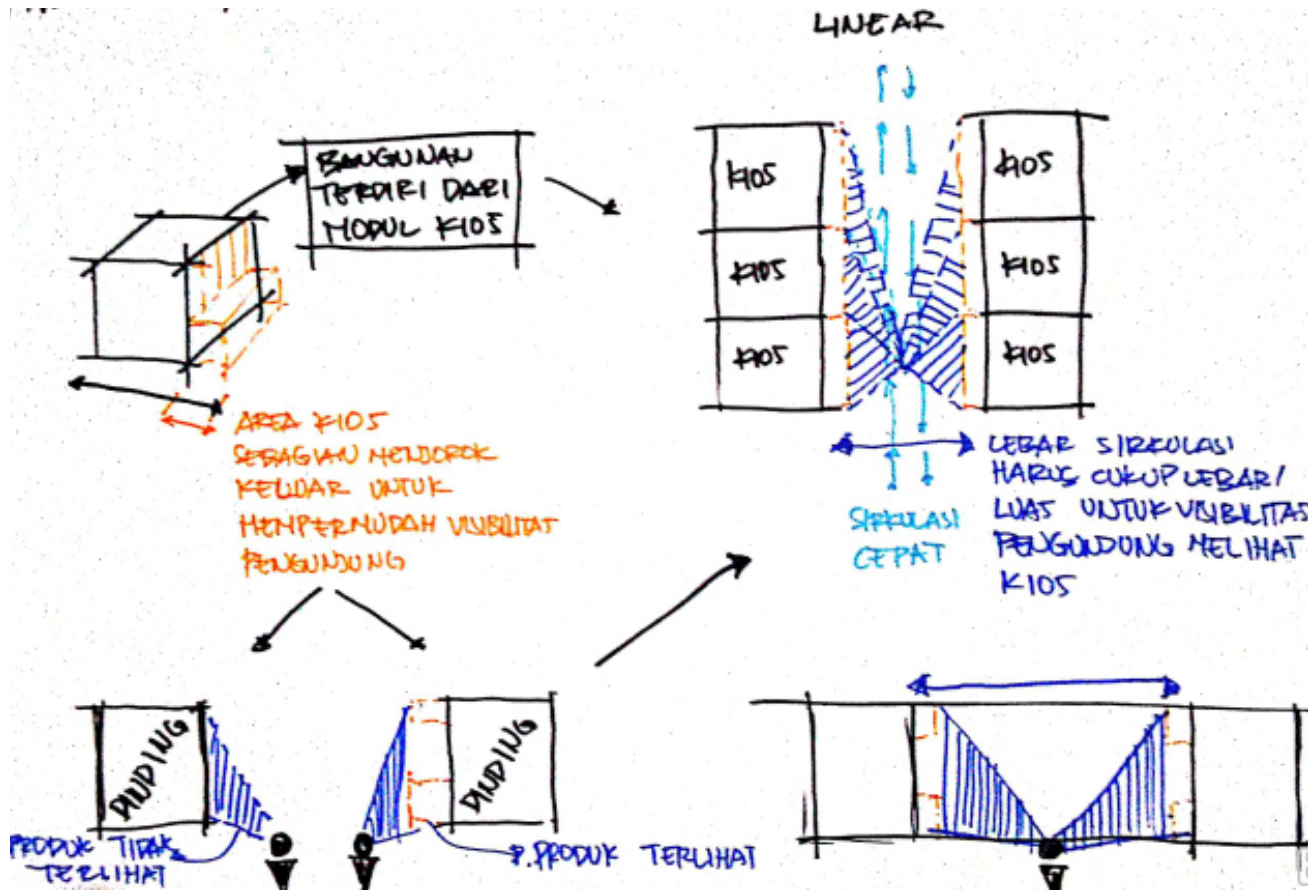 LINEAR
BANGUNAN
TERDIRI DARI
MODUL KIOS
KIOS
KIOS
KIOS
KIOS
KIOS
KIOS
AREA KIOS
SEBAGIAN MENJOROK
KELUAR UNTUK
MEMPERMUDAH VISIBILITAS
PENGUNJUNG
SIRKULASI
CEPAT
LEBAR SIRKULASI
HARUS CUKUP LEBAR/
LUAS UNTUK VISIBILITAS
PENGUNJUNG MELIHAT
KIOS
DINDING
DINDING
PRODUK TIDAK
TERLIHAT
P. PRODUK TERLIHAT